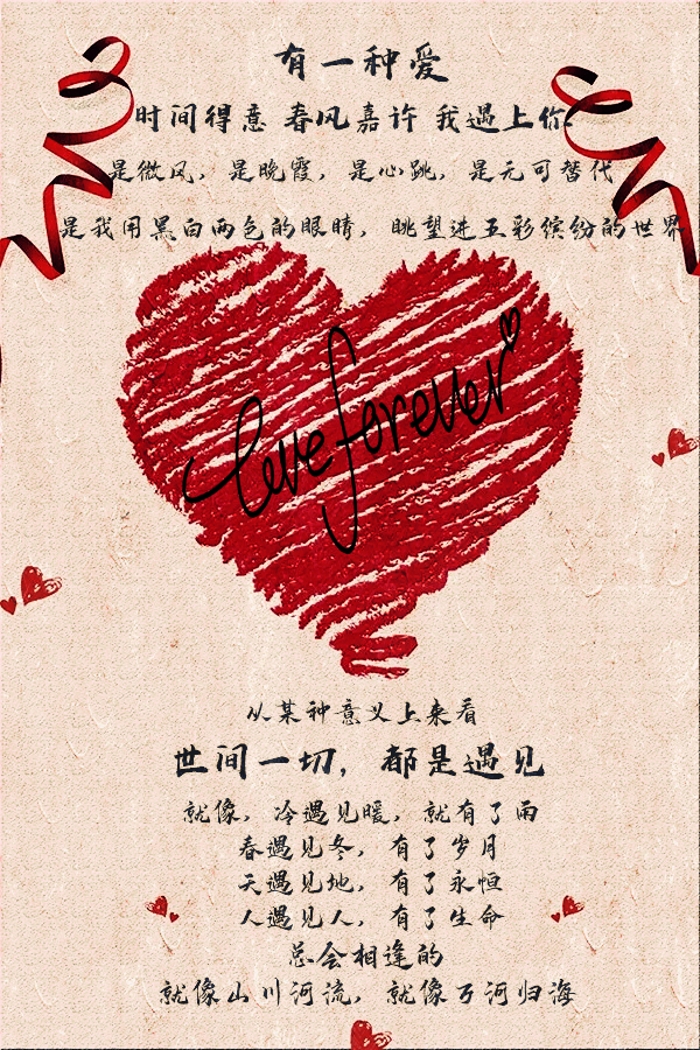 有一种爱
时间得意 春风嘉许 我遇上你
是微风，是晚霞，是心跳，是无可替代
是我用黑白两色的眼睛，眺望进五彩缤纷的世界
love forever
从某种意义上来看
世间一切，都是遇见
就像，冷遇见暖，就有了雨
春遇见冬，有了岁月
天遇见地，有了永恒
人遇见人，有了生命
总会相逢的
就像山川河流，就像万河归海